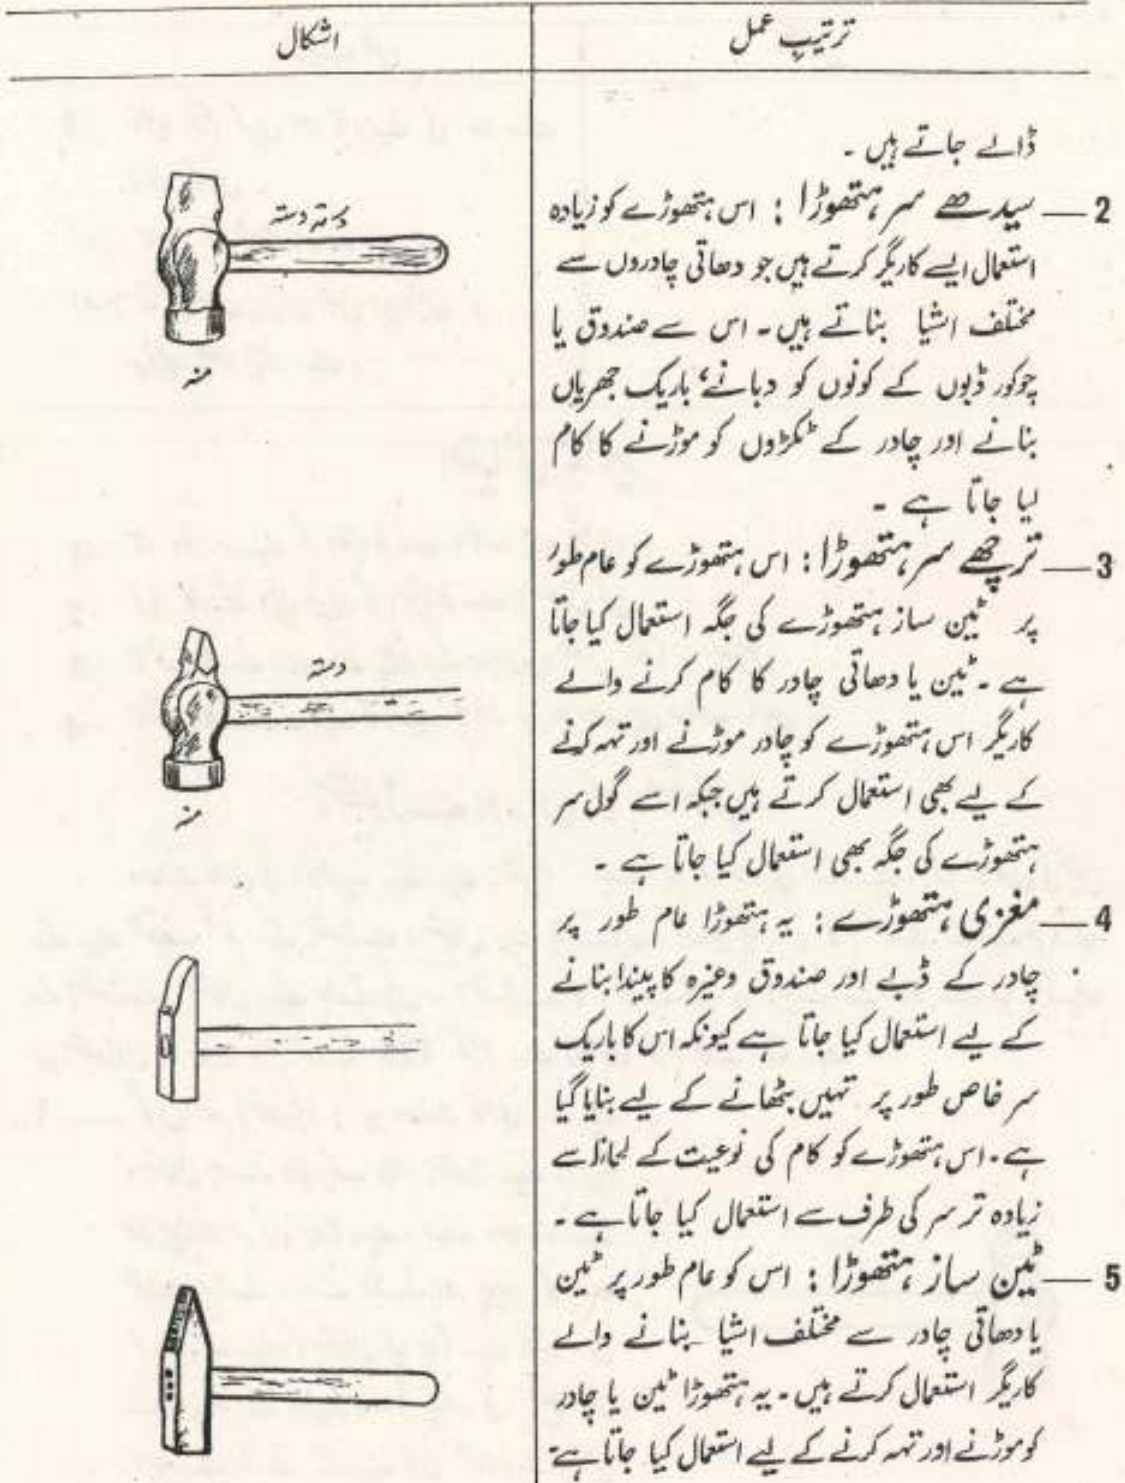 ترتیبِ عمل
اشکال
ڈالے جاتے ہیں ۔
2 — سیدھے سر ہتھوڑا : اس ہتھوڑے کو زیادہ
استعمال ایسے کاریگر کرتے ہیں جو دھاتی چادروں سے
مختلف اشیا بناتے ہیں ۔ اس سے صندوق یا
چوکور ڈبوں کے کونوں کو دبانے، باریک جھریاں
بنانے اور چادر کے ٹکڑوں کو موڑنے کا کام
لیا جاتا ہے ۔
3 — ترچھے سر ہتھوڑا : اس ہتھوڑے کو عام طور
پر ٹین ساز ہتھوڑے کی جگہ استعمال کیا جاتا
ہے ۔ ٹین یا دھاتی چادر کا کام کرنے والے
کاریگر اس ہتھوڑے کو چادر موڑنے اور تہہ کرنے
کے لیے بھی استعمال کرتے ہیں جبکہ اسے گول سر
ہتھوڑے کی جگہ بھی استعمال کیا جاتا ہے ۔
4 — مغزی ہتھوڑے : یہ ہتھوڑا عام طور پر
چادر کے ڈبے اور صندوق وغیرہ کا پیندا بنانے
کے لیے استعمال کیا جاتا ہے کیونکہ اس کا باریک
سر خاص طور پر تہیں بٹھانے کے لیے بنایا گیا
ہے ۔ اس ہتھوڑے کو کام کی نوعیت کے لحاظ سے
زیادہ تر سر کی طرف سے استعمال کیا جاتا ہے ۔
5 — ٹین ساز ہتھوڑا : اس کو عام طور پر ٹین
یا دھاتی چادر سے مختلف اشیا بنانے والے
کاریگر استعمال کرتے ہیں ۔ یہ ہتھوڑا ٹین یا چادر
کو موڑنے اور تہہ کرنے کے لیے استعمال کیا جاتا ہے ۔
دستہ
منہ
دستہ
منہ